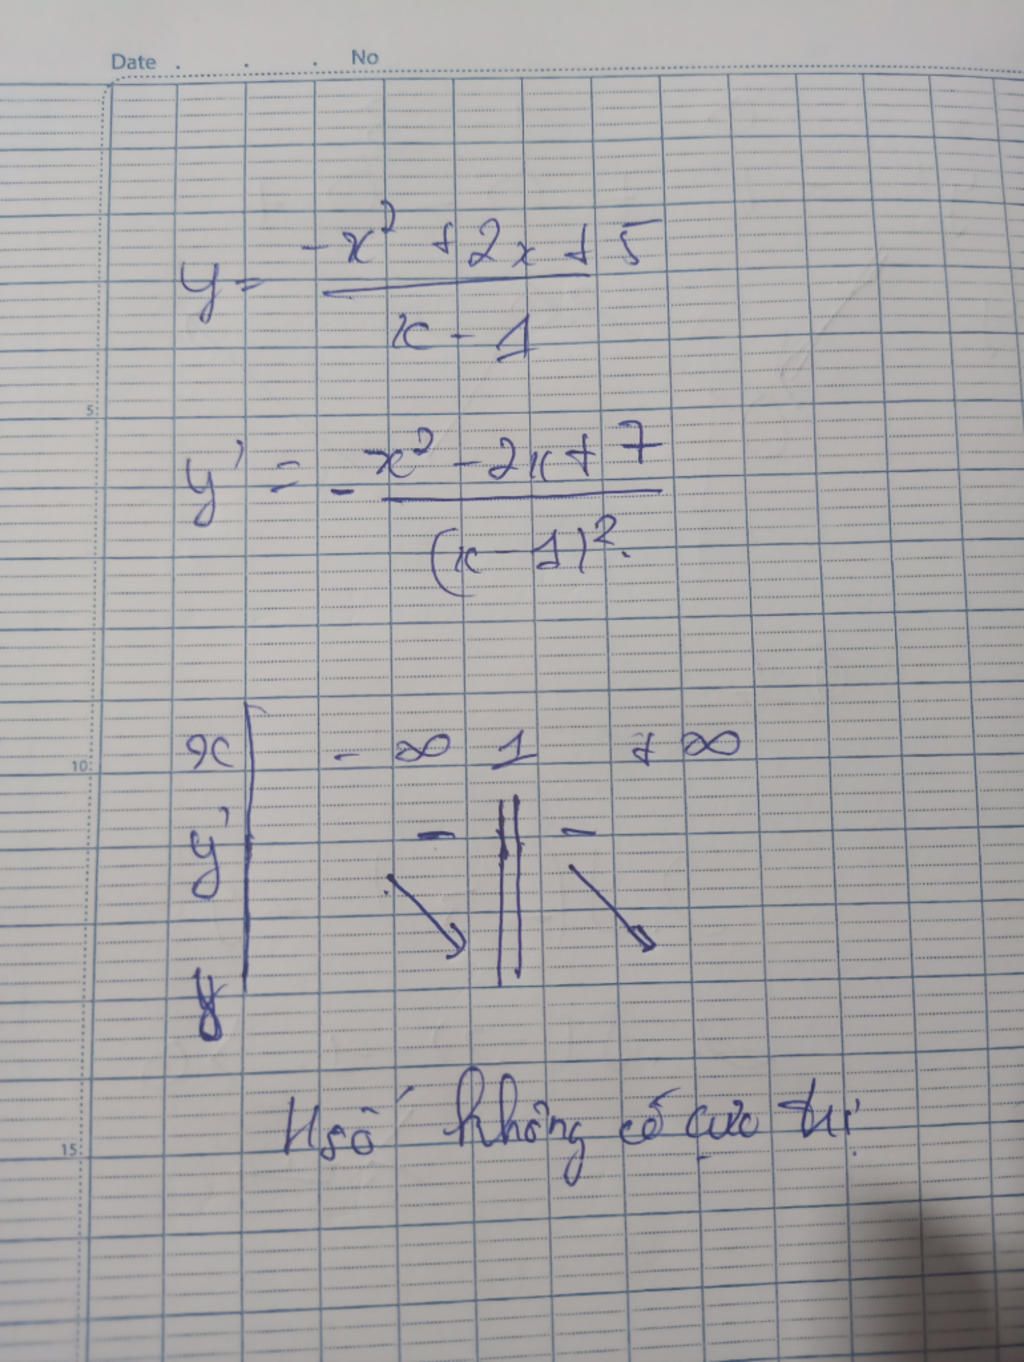 Date . . . No
y = (-x² + 2x + 5) / (x - 1)
5:
y' = - (x² - 2x + 7) / (x - 1)².
10:
x - ∞ 1 + ∞
y' - || -
y
15:
Hsố không có cực trị